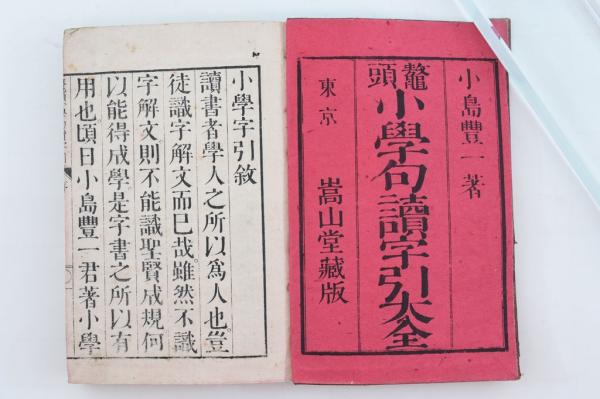 小島豐一著
鼇頭
小學句讀字引大全
東京
嵩山堂藏版
小學字引敘
讀書者學人之所以爲人也豈
徒識字解文而巳哉。雖然不識
字解文則不能識聖賢成規何
以能得成學是字書之所以有
用也頃日小島豐一君著小學